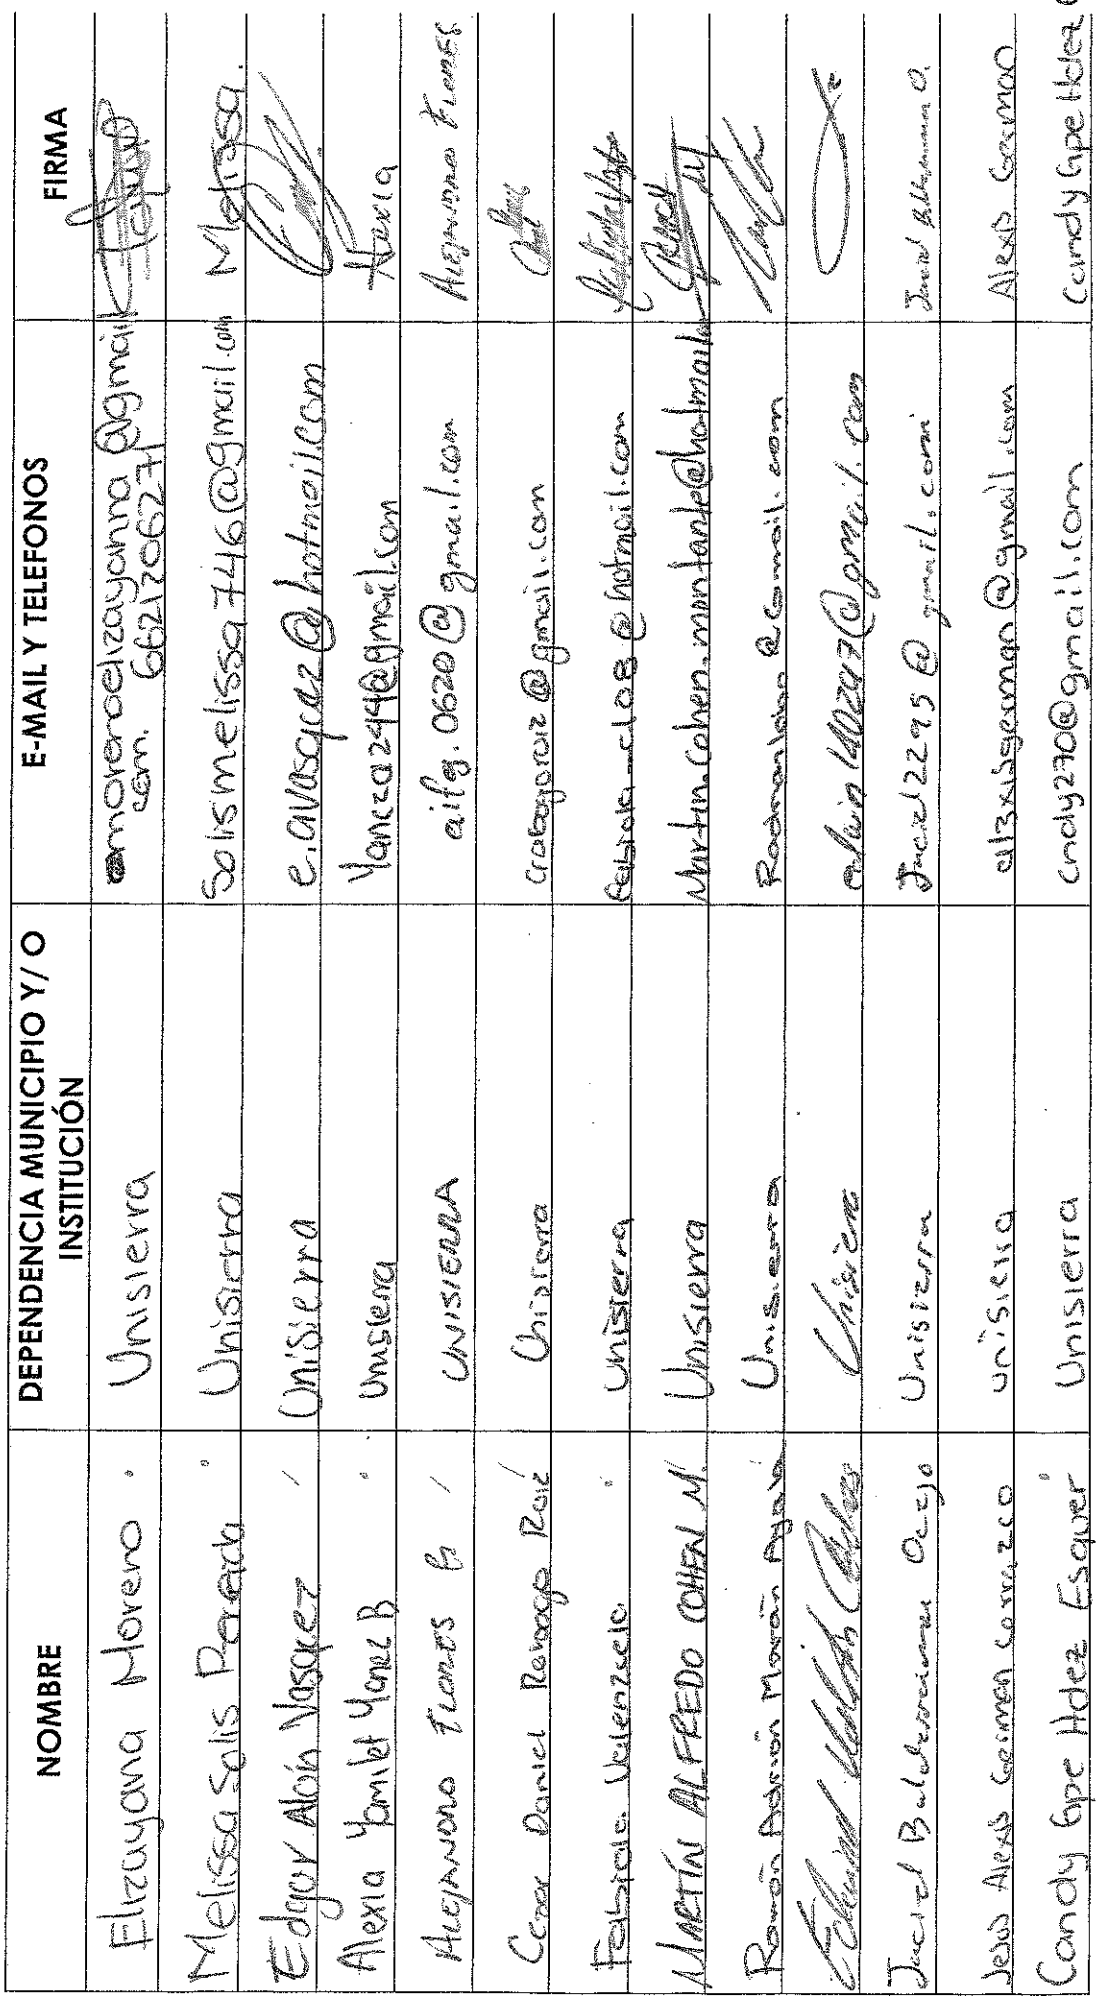 NOMBRE DEPENDENCIA MUNICIPIO Y/ O INSTITUCIÓN E-MAIL Y TELEFONOS FIRMA
Elizayana Moreno Unisierra amorenoelizayanna@gmail.
com. 6621206271
Melissa Solis Pereda Unisierra Solismelissa746@gmail.com Melissa.
Edgar Alán Vasquez Unisierra e.avasquez@hotmail.com
Alexia Yamilet Yanez B Unisierra Yaneza244@gmail.com Alexia
ALEJANDRO FLORES G UNISIERRA aifg.0620@gmail.com ALEJANDRO FLORES
Cesar Daniel Rabago Ruiz Unisierra crabagoruiz@gmail.com
Fabiola Valenzuela Unisierra fabiola-cl08@hotmail.com
MARTÍN ALFREDO COHEN M. Unisierra Martin.Cohen.montanto@hotmail.com
Ramón Adrián Morán Ayala Unisierra @Gmail.com
Unisierra @gmail.com
Jaciel Balderrama Ocejo Unisierra Jaciel2295@gmail.com Jaciel Balderrama O.
Jesus Alexis German Corrazco unisierra al3xisgerman@gmail.com Alexis German
Candy Gpe Hdez Esquer Unisierra cndy270@gmail.com Candy Gpe Hdez